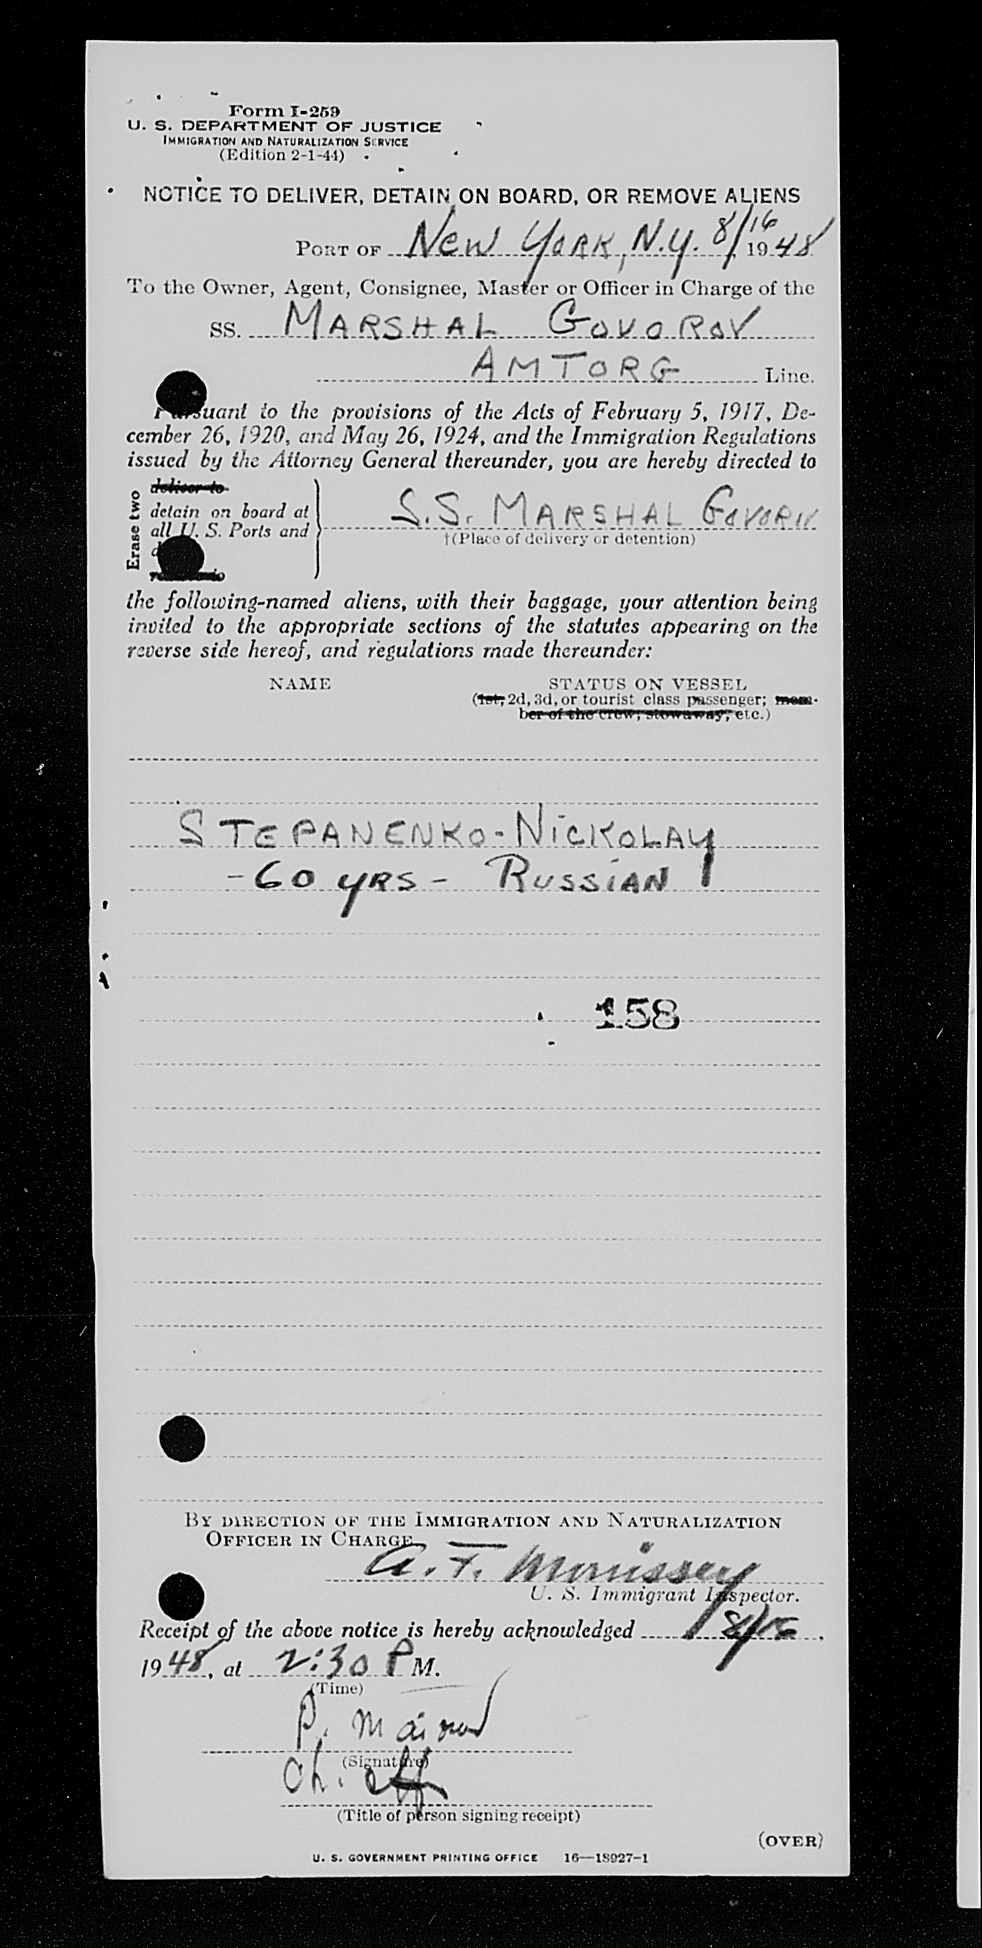 Form I-259
U. S. DEPARTMENT OF JUSTICE
IMMIGRATION AND NATURALIZATION SERVICE
(Edition 2-1-44)
NOTICE TO DELIVER, DETAIN ON BOARD, OR REMOVE ALIENS
PORT OF New York, N.Y. 8/16 1948
To the Owner, Agent, Consignee, Master or Officer in Charge of the
SS. MARSHAL GOVOROV
AMTORG Line.
Pursuant to the provisions of the Acts of February 5, 1917, De-
cember 26, 1920, and May 26, 1924, and the Immigration Regulations
issued by the Attorney General thereunder, you are hereby directed to
Erase two
deliver to
detain on board at
all U. S. Ports and
remove to
S.S. MARSHAL GOVOROV
†(Place of delivery or detention)
the following-named aliens, with their baggage, your attention being
invited to the appropriate sections of the statutes appearing on the
reverse side hereof, and regulations made thereunder:
NAME STATUS ON VESSEL
(1st, 2d, 3d, or tourist class passenger; mem-
ber of the crew; stowaway; etc.)
STEPANENKO-NICKOLAY
-60 YRS- RUSSIAN
158
BY DIRECTION OF THE IMMIGRATION AND NATURALIZATION
OFFICER IN CHARGE
A. F. Morrissey
U. S. Immigrant Inspector.
Receipt of the above notice is hereby acknowledged 8/16,
1948, at 2:30 P M.
(Time)
P.
(Signature)
Ch. off
(Title of person signing receipt)
(OVER)
U. S. GOVERNMENT PRINTING OFFICE 16—18927-1